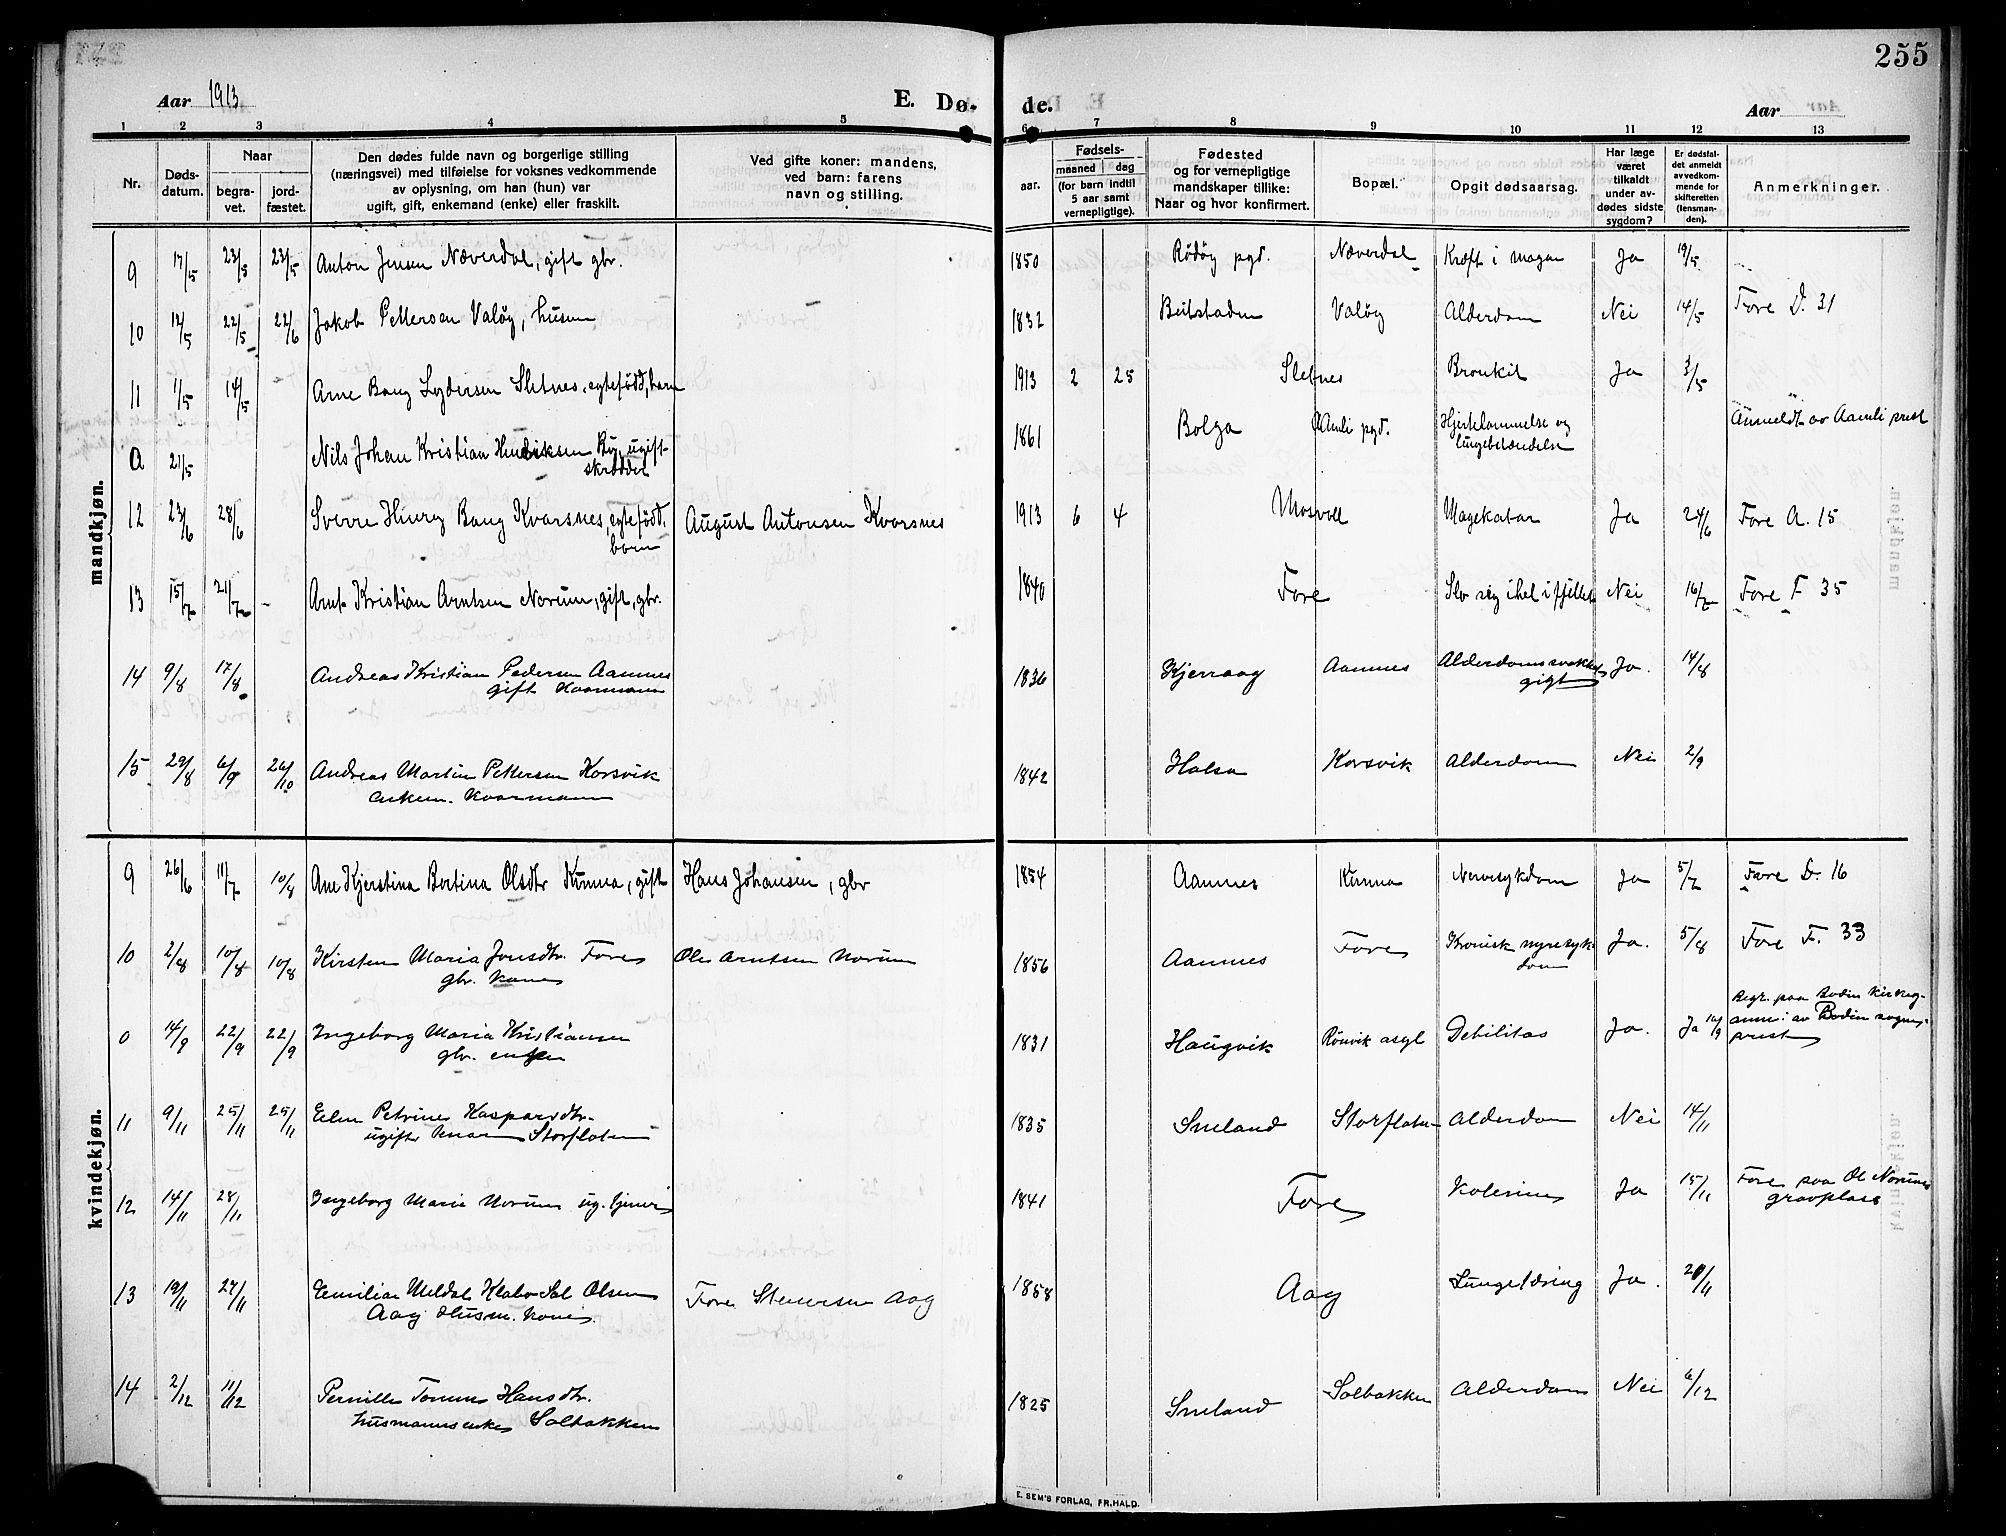 255
Aar 1913.
E. Dø-
de.
Aar
1 2 3 4 5
6 7 8 9 10 11 12 13
Nr.
Døds-
datum.
Naar
begra-
vet.
jord-
fæstet.
Den dødes fulde navn og borgerlige stilling
(næringsvei) med tilføielse for voksnes vedkommende
av oplysning, om han (hun) var
ugift, gift, enkemand (enke) eller fraskilt.
Ved gifte koner: mandens,
ved barn: farens
navn og stilling.
Fødsels-
aar.
maaned dag
(for barn indtil
5 aar samt
vernepligtige).
Fødested
og for vernepligtige
mandskaper tillike:
Naar og hvor konfirmert.
Bopæl.
Opgit dødsaarsag.
Har læge
været
tilkaldt
under av-
dødes sidste
sygdom?
Er dødsfal-
det anmeldt
av vedkom-
mende for
skifteretten
(lensman-
den).
Anmerkninger.
mandkjøn.
9 17/5 23/5 23/5 Anton Jensen Næverdal, gift gbr. 1850 Rödöy pgd. Næverdal Kræft i magen Ja 19/5
10 12/5 22/5 22/6 Jakob Pettersen Valöy, husm 1832 Beitstaden Valöy Alderdom Nei 14/5 Fore D. 31
11 1/5 14/5 Arne Bang Lydersen Sletnes, egtefödd, barn 1913 2 25 Sletnes Bronkit Ja 3/5
a 21/5 Nils Johan Kristian Hendriksen ugift
skrædder 1861 Bolga Aamli pgd. Hjertelammelse og
lungebetændelse Anmeldt av Aamli prest
12 23/6 28/6 Sverre Hinry Bang Kvarsnes, egtefödd,
barn August Antonsen Kvarsnes 1913 6 4 Mosvoll Magekatar Ja 24/6 Fore A. 15
13 15/7 21/7 - Arnt Kristian Arntsen Norum, gift, gbr. 1840 Fore Slo sig ihel i fjellet Nei 16/7 Fore F 35
14 9/8 17/8 Andreas Kristian Pedersen Aamnes
gift Kaarmann 1836 Kjerraag Aamnes Alderdomssvakhet
gigt Ja. 14/8
15 29/8 6/9 26/10 Andreas Martin Pettersen Korsvik
enkem. kaarmann 1842 Halsa Korsvik Alderdom Nei 2/9
kvindekjøn.
9 26/6 11/7 10/8 Ane Kjerstina Bertina Olsdtr Kunna, gift Hans Johansen, gbr 1854 Aamnes Kunna Nervesykdom Ja 5/7 Fore D. 16
10 2/8 10/8 10/8 Kirsten Maria Jonsdtr. Fore
gbr. kone Ole Arntsen Norum 1856 Aamnes Fore Kronisk nyresyk
dom Ja. 5/8 Fore F. 33
0 14/9 22/9 22/9 Ingeborg Maria Kristiansen
gbr. enke 1831 Haugvik Rönvik asyl Debilitas Ja. Ja 16/9 Begr. paa Bodin kirkeg-
anm. av Bodin sogne-
prest
11 9/11 25/11 25/11 Elen Petrine Kaspersdtr.
ugift Storflaten 1835 Smeland Storflaten Alderdom Nei 14/11
12 14/11 28/11 Ingeborg Marie Norum ug. 1841 Fore Kolerine Ja 15/11 Fore paa Ol Norums
gravplass
13 19/11 27/11 Emilie Meldal Olsen
Aag Husm. kone. Fore Stenersen Aag 1858 Aag Lungetæring Ja. 20/11
14 2/12 11/12 Pernille Tomine Hansdtr.
husmannsenke Solbakken 1825 Smeland Solbakken Alderdom Nei 6/12
E. SEM'S FORLAG, FR.HALD.